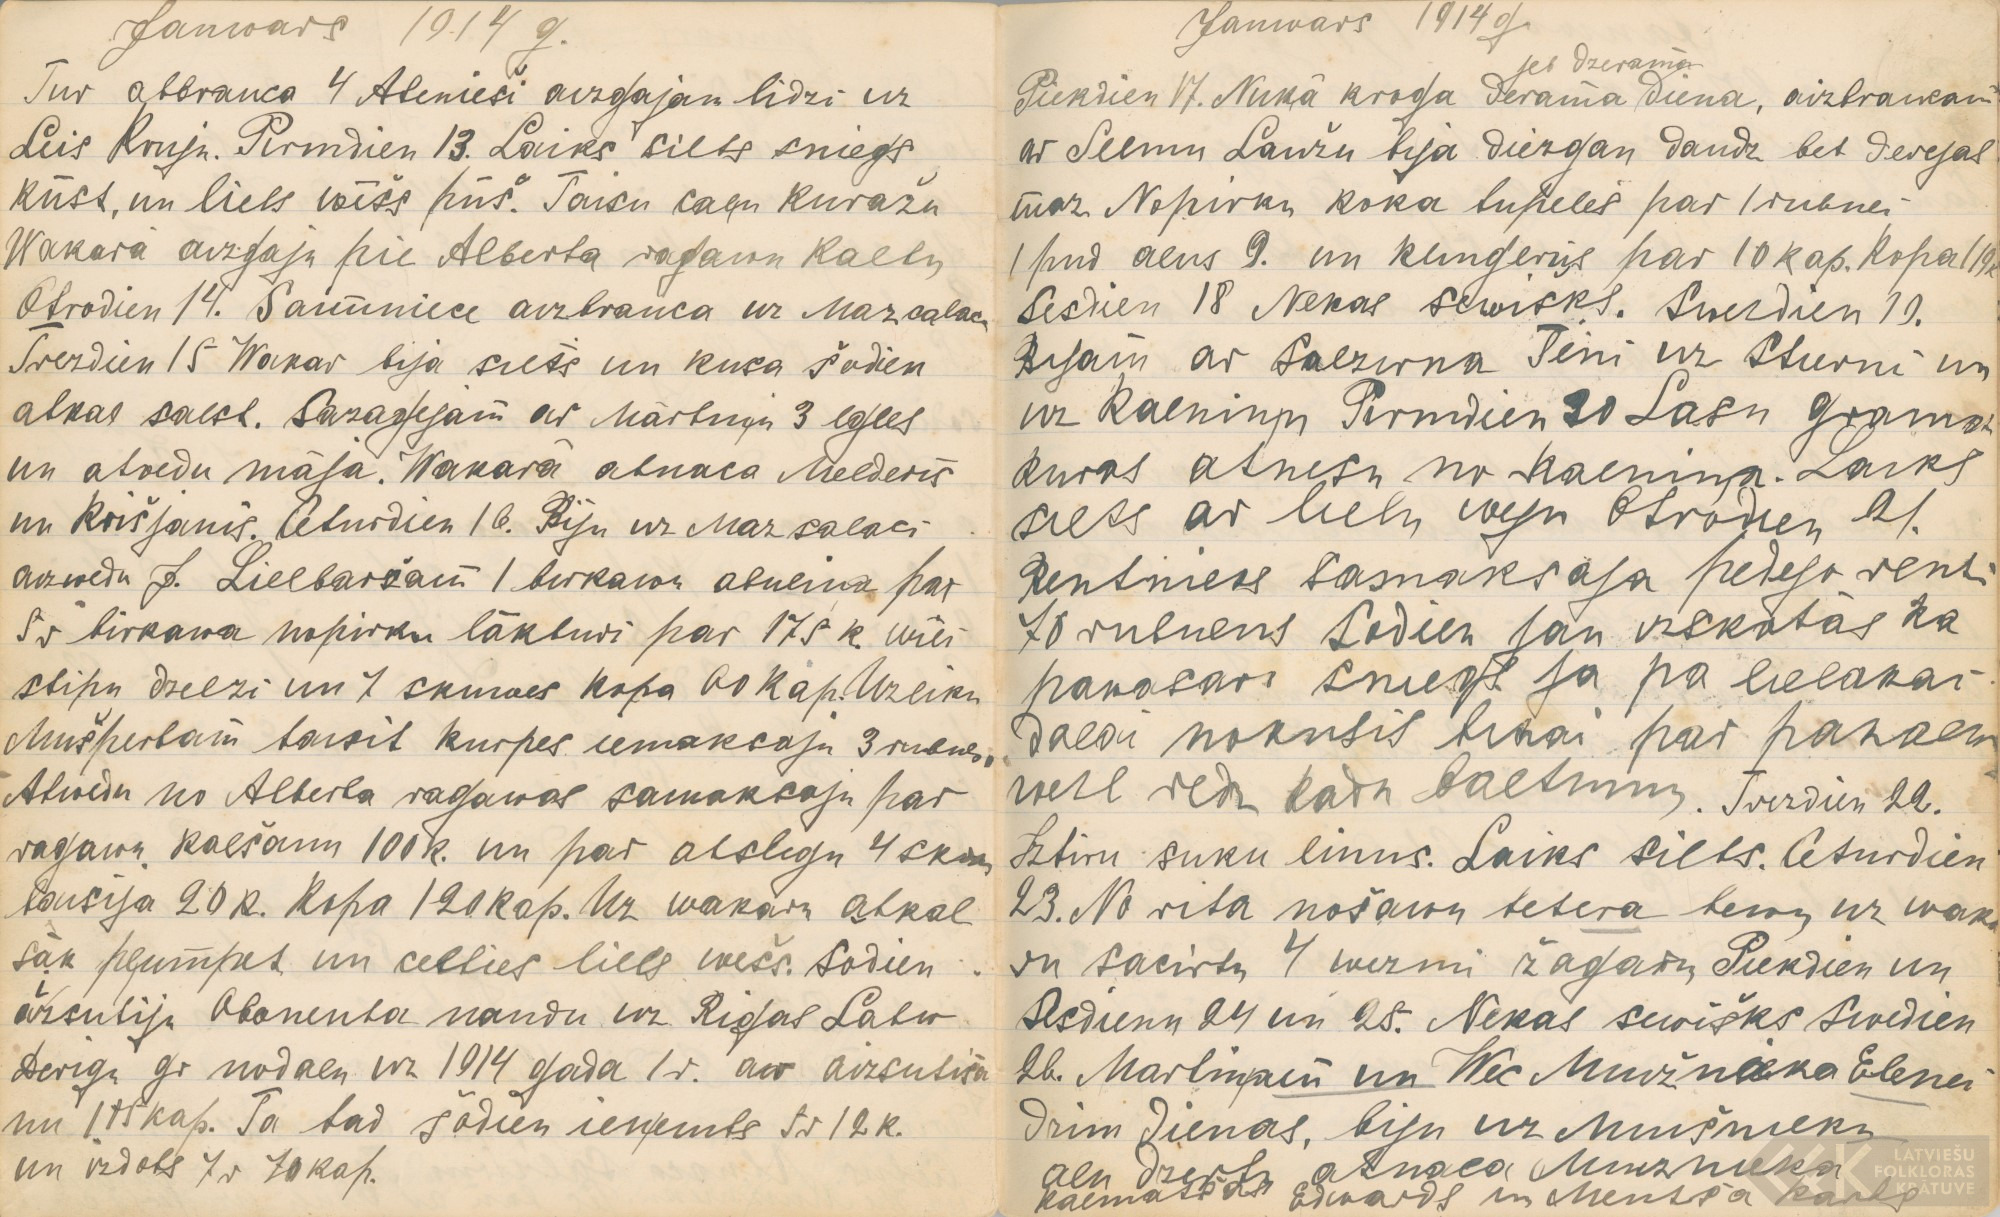 Janwars 1914 g.
Tur atbrauca 4 Atenieši aizgajam lidzi uz
Leis Rouju. Pirmdien 13. Laiks silts sniegs
kūst, un liels wējšs pūš. Taisu caļu kuražu
Wakarā aizgaju pie Alberta ragawu kaltu
Otrodien 14. Saimniece aizbrauca uz Mazsalac
Trezdien 15 Wakar bija silts un kusa šodien
atkal salst. Sazagejam ar Mārtiņu 3 egles
un atvedu mājā. Wakarā atnaca Melderis
un Krišjanis. Ceturdien 16. Biju uz Mazsalaci
aizwedu J. Lielbaržam 1 birkawu abuliņa par
5 r birkawa nopirku lākturi par 175 k. wili
stipu dzelzi un 7 skuwes kopa 60 Kap. Uzliku
Mušpertam taisit kurpes iemaksaju 3 rubuļ.
Atwedu no Alberta ragawas samaksaju par
ragawu kalšanu 100 k. un par atslegu 4 skuw
taisija 20 k. Kopa 120 kap. Uz wakaru atkal
sāk pļumpēt un celties liels wešs. Šodien
aizsutiju Abonenta naudu uz Rigas Latw
Derigu gr nodaļu uz 1914 gada 1 r. aw aizsutiša
nu 115 kap. Ta tad šodien ieņemts 5 r 12 k.
un izdots 7 r 70 kap.
Janwars 1914 g
jeb dzeramā
Piekdien 17. Nukā kroga derama diena, aizbraucam
ar Sēlmu Laužu bija diezgan daudz bet derejas
maz Nopirku koka tupeles par 1 rubuli
1 pud alus 9. un klingerus par 10 kap. Kopa 119 k
Sesdien 18 Nekas sewisks. Swezdien 19.
Bijam ar Salzirna Tini uz Sturni un
uz Kalniņu Pirmdien 20 Lasu gramat
kuras atnesu no Kalniņa. Laiks
silts ar lielu weju Otrodien 21.
Rentnieks samaksaja pedejo renti
70 rubuļus Šodien jau izskatās ka
pawasari sniegs ja pa lielakai
daļai nokusis tikai par pakaln
wehl redz kadu baltumu. Trezdien 22.
Iztiru suku linus. Laiks silts. Ceturdien
23. No rita nošawu tetera tewu uz waka
ru sacirtu 4 wezmi žagaru Piekdien un
Sesdienu 24 un 25. Nekas sewišks Swedien
26. Martiņam un Wec Muižnieka Elenei
Dzim Dienas, biju uz Muišnieku
alu dzert, atnaca Muiznieka
Edwards un Mentša Karls
LATVIEŠU
FOLKLORAS
KRĀTUVE